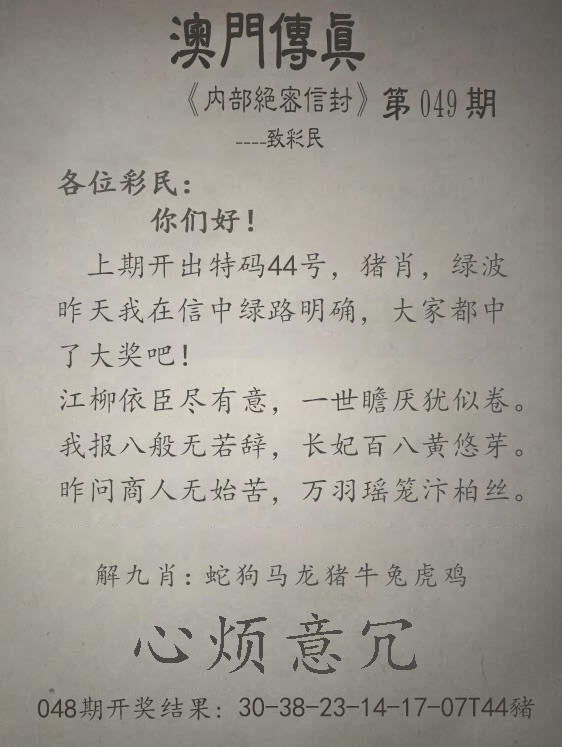 澳門傳眞
《内部絕密信封》第049期
----致彩民
各位彩民：
你们好！
上期开出特码44号，猪肖，绿波
昨天我在信中绿路明确，大家都中
了大奖吧！
江柳依臣尽有意，一世瞻厌犹似卷。
我报八般无若辞，长妃百八黄悠芽。
昨问商人无始苦，万羽瑶笼汴柏丝。
解九肖：蛇狗马龙猪牛兔虎鸡
心烦意冗
048期开奖结果：30-38-23-14-17-07T44豬